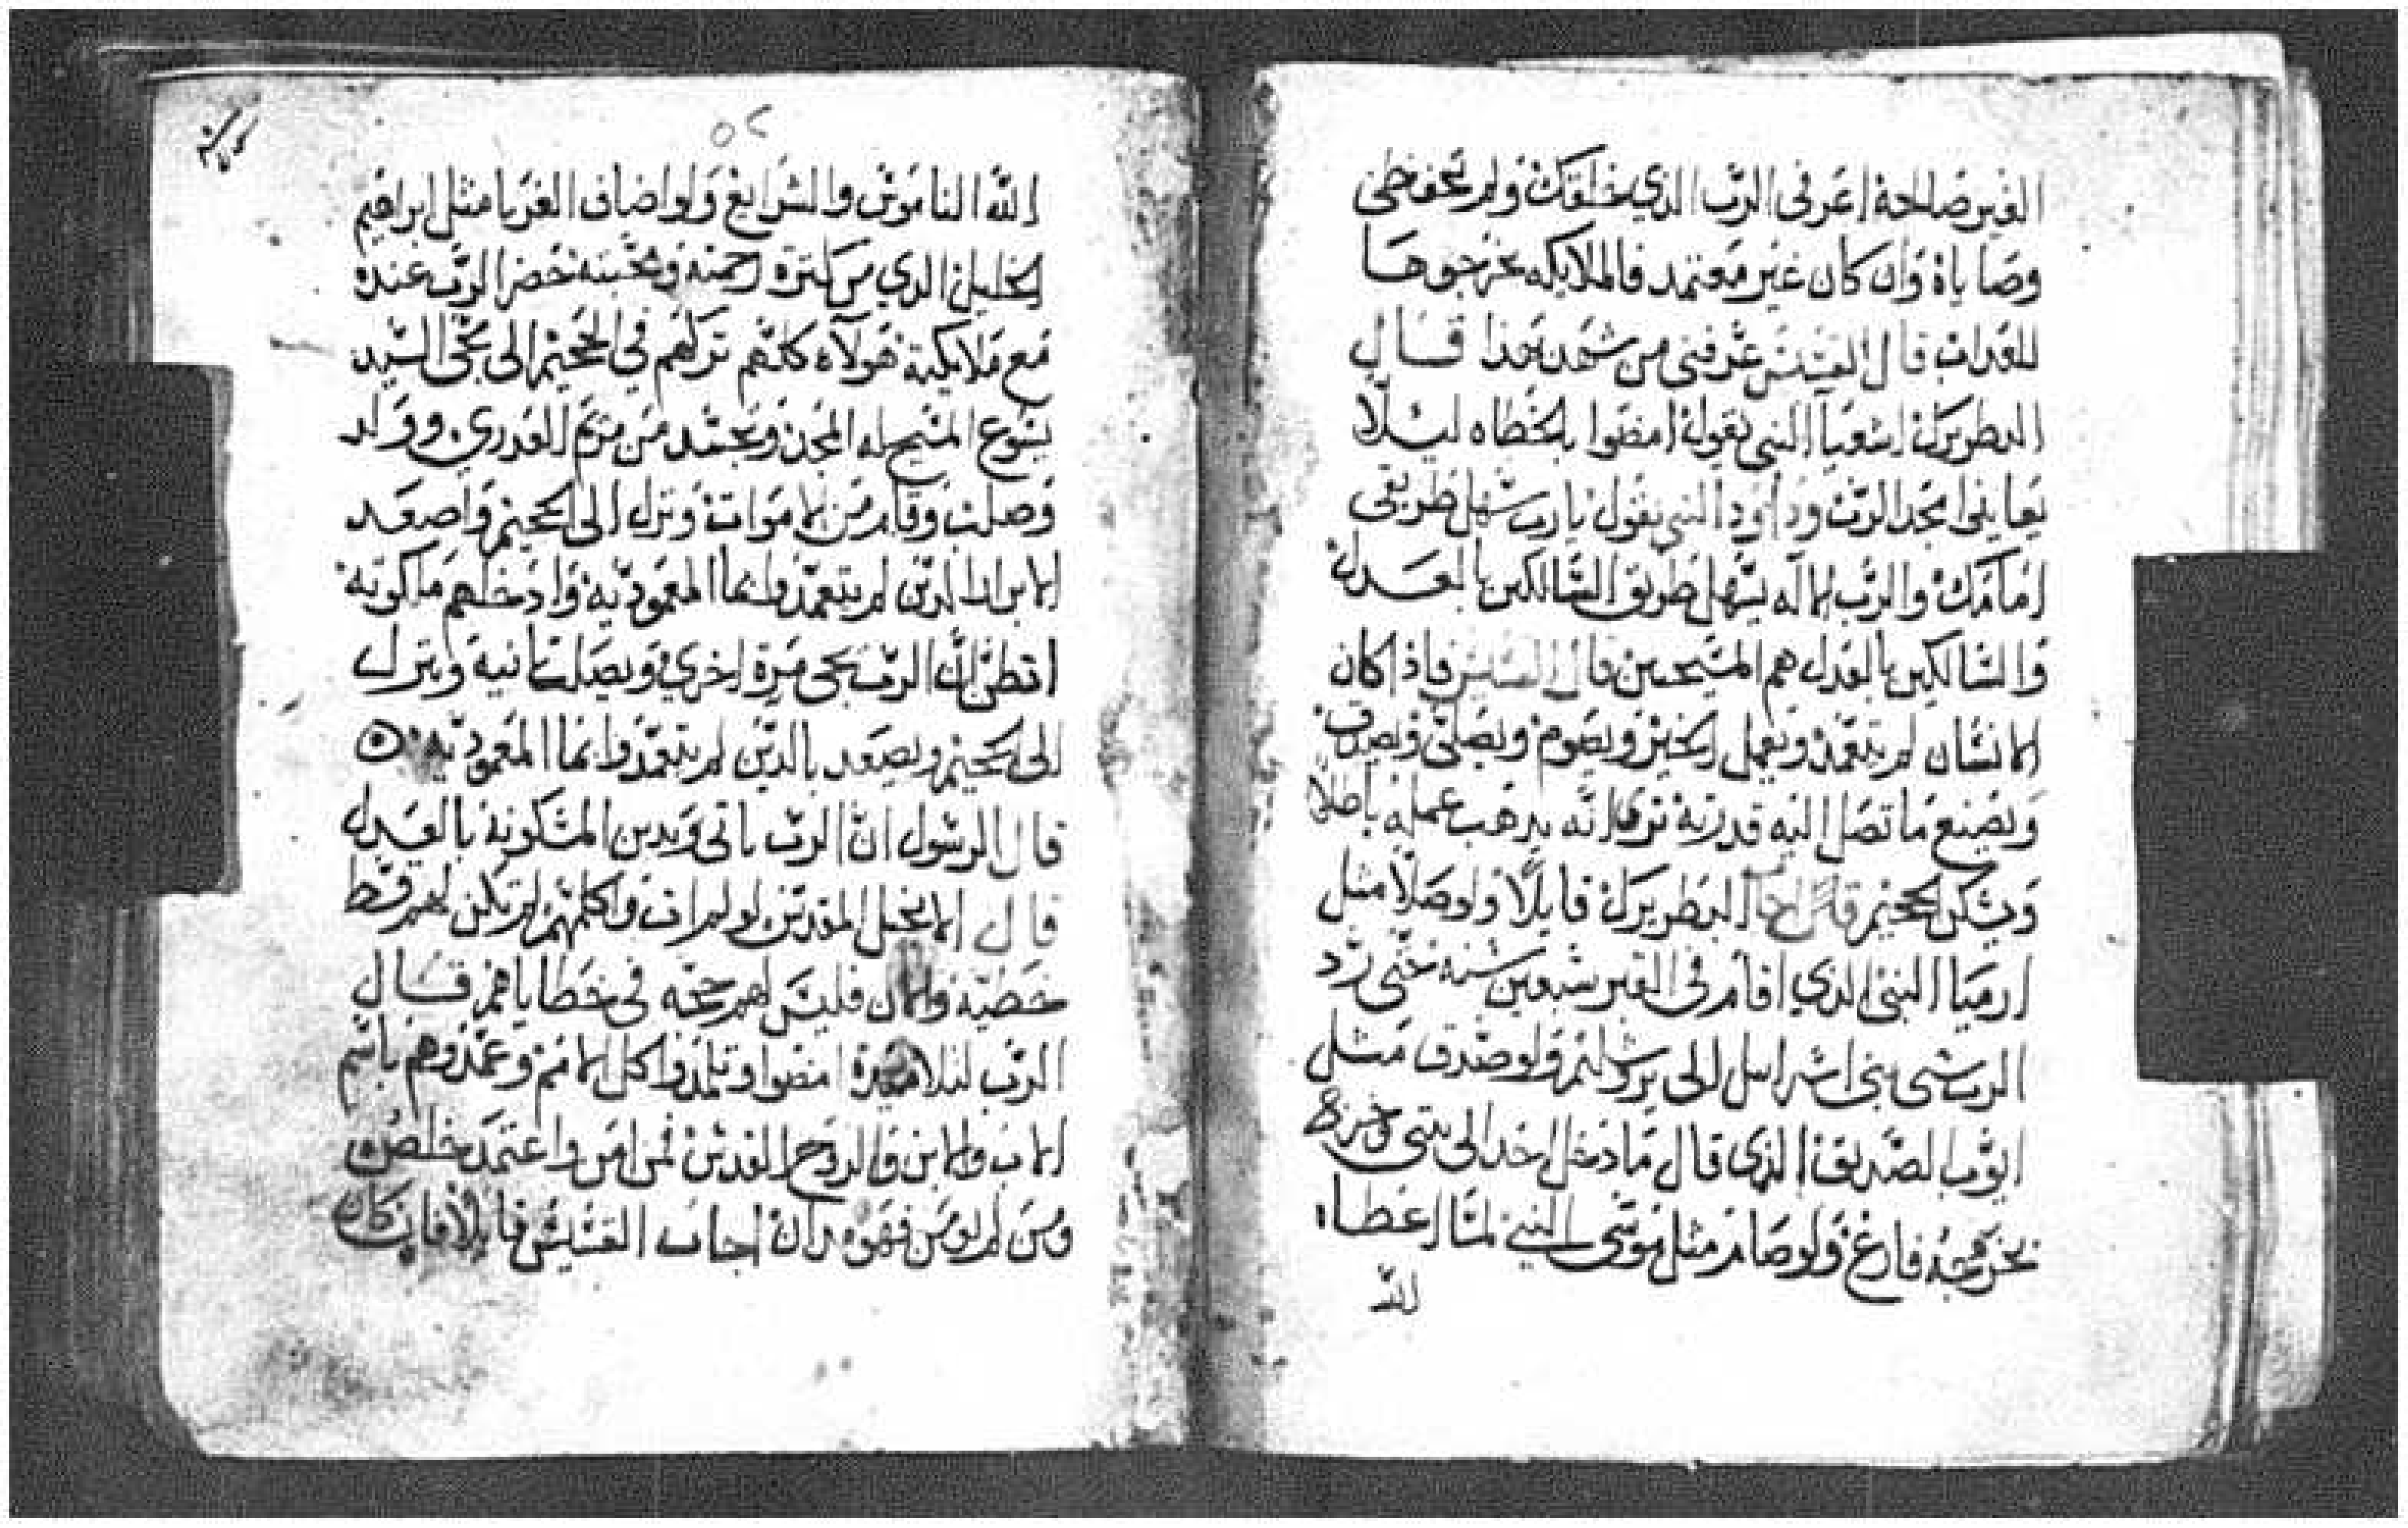 الغير صالحة اعرفى الرب الدي خلقك ولم تحفظى
وصاياه وان كان غير معتمد فالملايكه يخرجوها
للعداب قال القسيس عرفنى من شهد بهذا قال
البطريرك اشعيا النبى يقول امضوا بالخطاه ليلا
يعاينوا مجد الرب وداوود النبى يقول يارب سهل طريقى
امامك والرب الاله يسهل طريق السالكين بالعدل
والسالكين بالعدل هم المسيحيين قال القسيس فاذا كان
الانسان لم يتعمد ويعمل الخير ويصوم ويصلى ويصدق
ويصنع ما تصل اليه قدرته ترى انه يذهب عمله باطلا
ويسكن الجحيم اجاب البطريرك قايلا ولو صلا مثل
ارميا النبى الدي اقام فى القبر سبعين سنه حتى رد
الرب سبى بنى اسراييل الى يروشليم ولو صدق مثل
ايوب الصديق الذى قال ما دخل احد الى بيتى وخرج
بحرجه فارغ ولو صام مثل موسى النبى لما اعطاه
الله
٥٢
الله الناموس والشرايع ولو اضاف الغربا مثل ابراهيم
الخليل الدي من كترة رحمته ومحبته حضر الرب عنده
مع ملايكته هولاه كلهم تركهم في الجحيم الى مجى السيد
يسوع المسيح له المجد وتجسد من مريم العدري وولد
وصلب وقام من الاموات ونزل الى الجحيم واصعد
الابرار الدين لم يتعمدوا بما المعموديه وادخلهم ملكوته
اتظن ان الرب يجى مرة اخري ويصلب تانية وينزل
الى الجحيم ويصعد بالدين لم يتعمدوا بما المعموديه
قال الرسول ان الرب ياتى ويدين المسكونة بالعدل
قال الانجيل المقدس لو لم اات واكلمهم لم تكن لهم قط
خطية والان فليس لهم حجه فى خطاياهم قال
الرب لتلاميده امضوا وتلمدوا كل الامم وعمدوهم باسم
الاب والابن والروح القدس فمن امن واعتمد خلص
ومن لم يومن فهو يدان اجاب القسيس قايلا فان كان